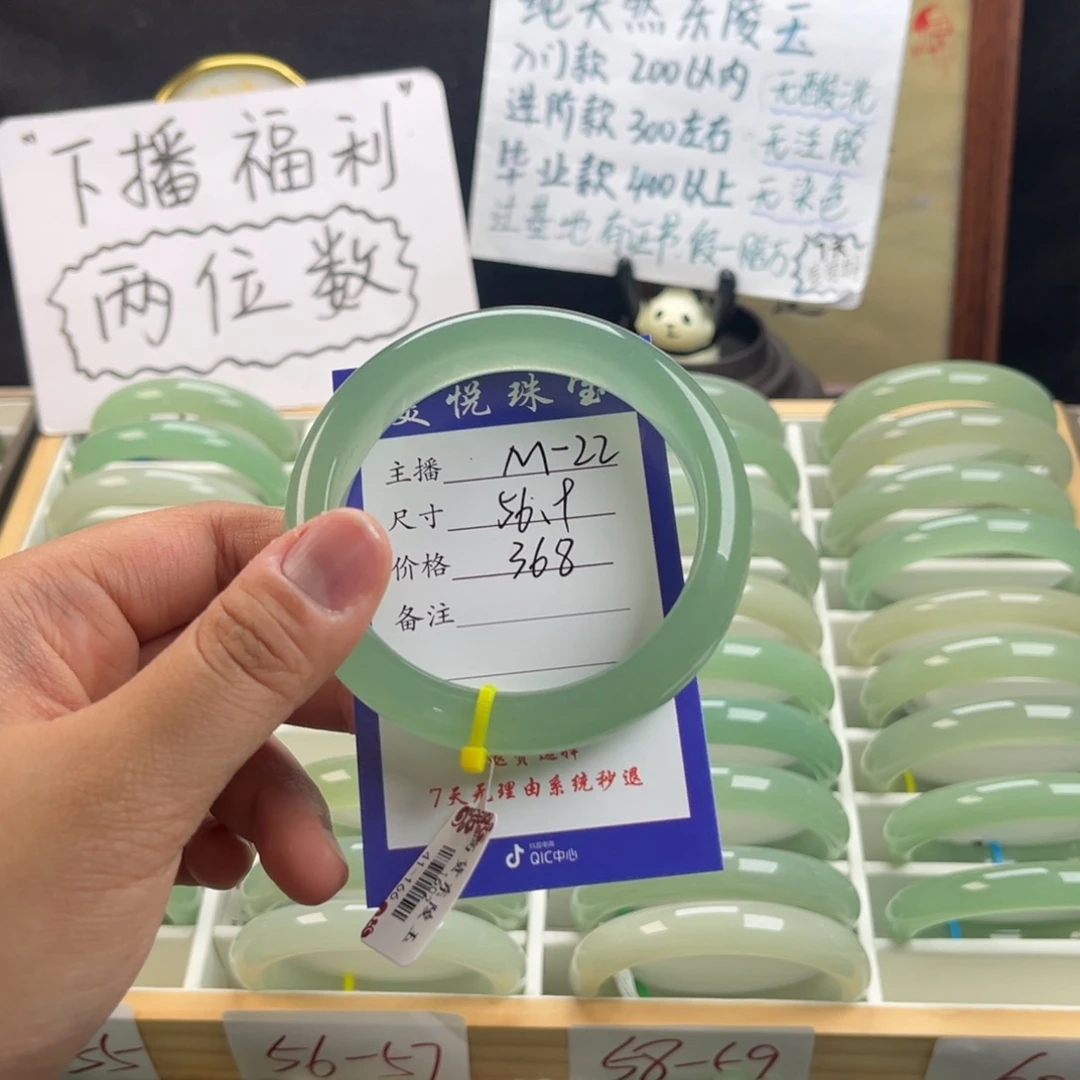 "下播福利"
两位数
纯天然东陵玉
入门款 200以内 无酸洗
进阶款 300左右 无注胶
毕业款 400以上 无染色
过基地有证书假一赔万
悦珠宝
主播 M-22
尺寸 56.9
价格 368
备注
7天无理由系统秒退
抖音电商
QIC中心
55
56-57
58-59